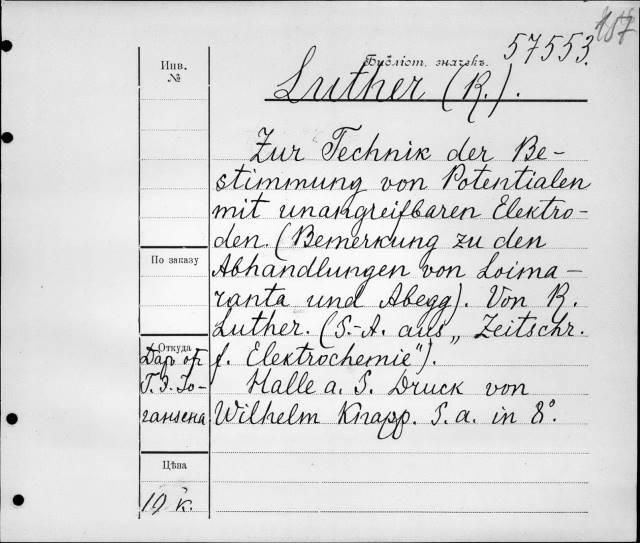 157
57553.
Инв.
№
Библіот. значекъ.
Luther (R.).
Zur Technik der Be-
stimmung von Potentialen
mit unangreifbaren Elektro-
den. (Bemerkung zu den
Abhandlungen von Loima-
ranta und Abegg). Von R.
Luther. (S.-A. aus „Zeitschr.
f. Elektrochemie").
Halle a. S. Druck von
Wilhelm Knapp. S. a. in 8°.
По заказу
Откуда
Даръ отъ
Г. Э. Іо-
гансена
Цѣна
19 к.